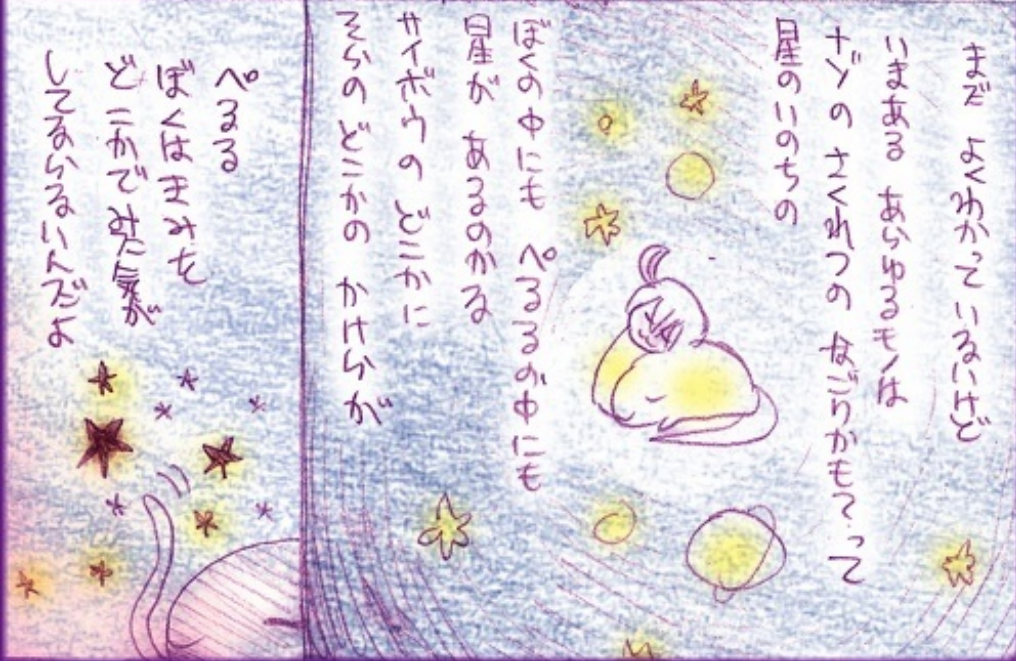 まだ よくわかって いないけど
いまある あらゆるモノは
ナゾの さくれつの なごりかもって って
星のいのちの
ぼくの中にも ぺるるの中にも
星が あるのかな
サイボウの どこかに
そらの どこかの かけらが
ぺるる
ぼくはきみを
どこかで みた気が
してならないんだよ